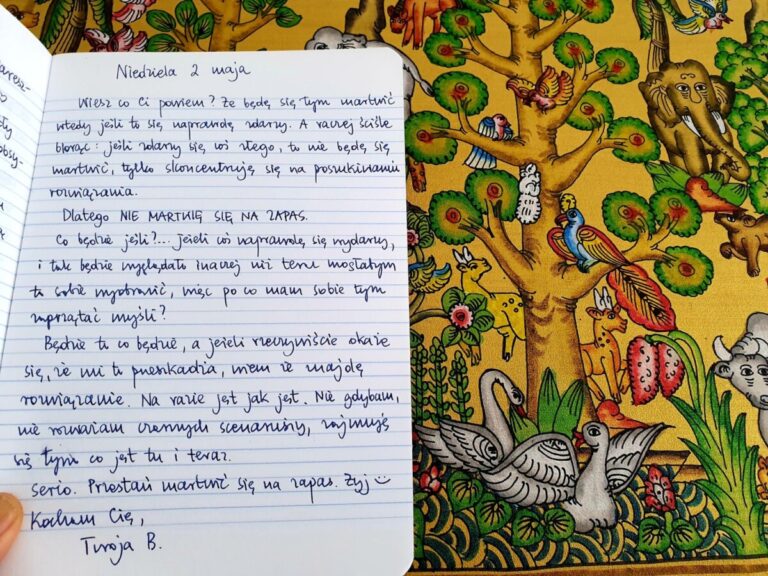 Niedziela 2 maja
Wiesz co Ci powiem? Że będę się tym martwić
wtedy jeśli to się naprawdę zdarzy. A raczej ściśle
biorąc: jeśli zdarzy się coś złego, to nie będę się
martwić, tylko skoncentruję się na poszukiwaniu
rozwiązania.
Dlatego NIE MARTWIĘ SIĘ NA ZAPAS.
Co będzie jeśli?... Jeżeli coś naprawdę się wydarzy,
i tak będzie wyglądało inaczej niż teraz mogłabym
to sobie wyobrazić, więc po co mam sobie tym
zaprzątać myśli?
Będzie to co będzie, a jeżeli rzeczywiście okaże
się, że mi to przeszkadza, wiem że znajdę
rozwiązanie. Na razie jest jak jest. Nie gdybam,
nie rozważam czarnych scenariuszy, zajmuję
się tym co jest tu i teraz.
Serio. Przestań martwić się na zapas. Żyj ☺
Kocham Cię,
Twoja B.